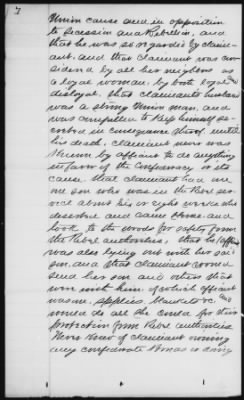 7
Union cause and in opposition
to Secession and Rebellion, and
that he was so regarded by claim-
ant. and that claimant was con-
sidered by all her neighbors as
a loyal woman, by both loyal and
disloyal. that claimants husband
was a strong Union man, and
was compelled to keep himself se-
creted in consequence thereof until
his death. claimant never was
known by affiant to do anything
in favor of the Confederacy or its
cause. that claimant had
one son who was in the Rebel ser-
vice about six or eight weeks who
deserted and came home and
took to the woods for safety from
the Rebel authorities. that he (affiant)
was also lying out with her said
son. and that claimant would
send her son and others that
were with him of which affiant
was one, supplies blankets &c. and
would do all she could for their
protection from Rebel authorities
Never knew of claimant owning
any confederate bonds or doing